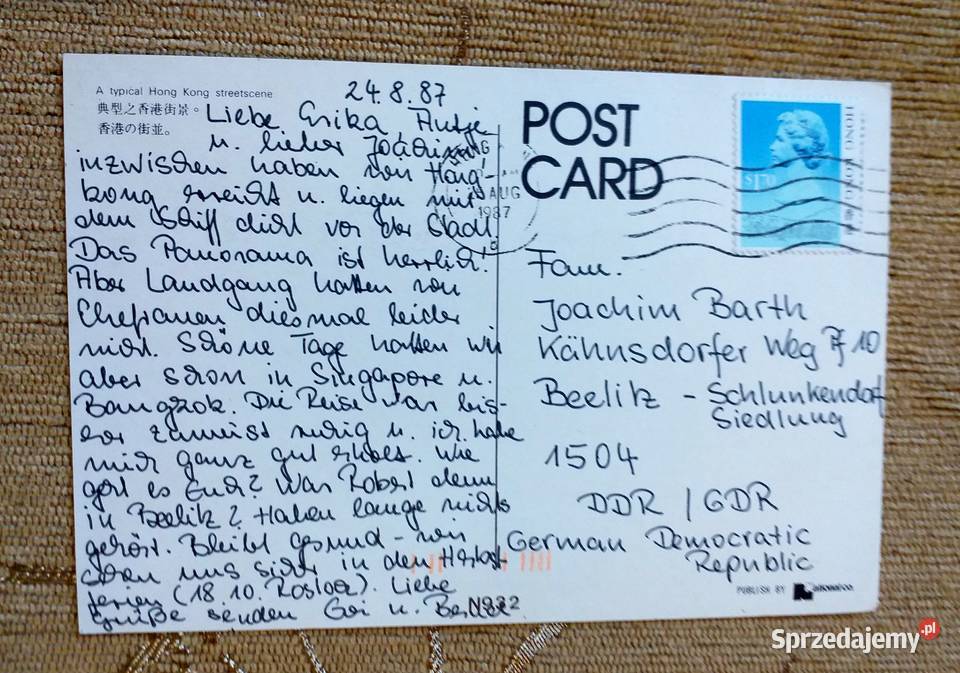 A typical Hong Kong streetscene
典型之香港街景。
香港の街並。
24.8.87
Liebe Erika, Antje
u. lieber Joachim,
inzwischen haben wir Hong-
kong erreicht u. liegen mit
dem Schiff dicht vor der Stadt.
Das Panorama ist herrlich!
Aber Landgang hatten wir
Ehefrauen diesmal leider
nicht. Schöne Tage hatten wir
aber schon in Singapore u.
Bangkok. Die Reise war bis-
her zumeist ruhig u. ich habe
mich ganz gut erholt. Wie
geht es Euch? War Robert denn
in Beelitz? Haben lange nichts
gehört. Bleibt gesund – wir
sehen uns sicher in den Herbst-
ferien (18.10. Rostock). Liebe
Grüße senden u.
POST
CARD
HONG KONG
$1.70
AUG
1987
Fam.
Joachim Barth
Kähnsdorfer Weg Pf 10
Beelitz - Schlunkendorf
Siedlung
1504
DDR / GDR
German Democratic
Republic
PUBLISH BY
N922
Sprzedajemy.pl